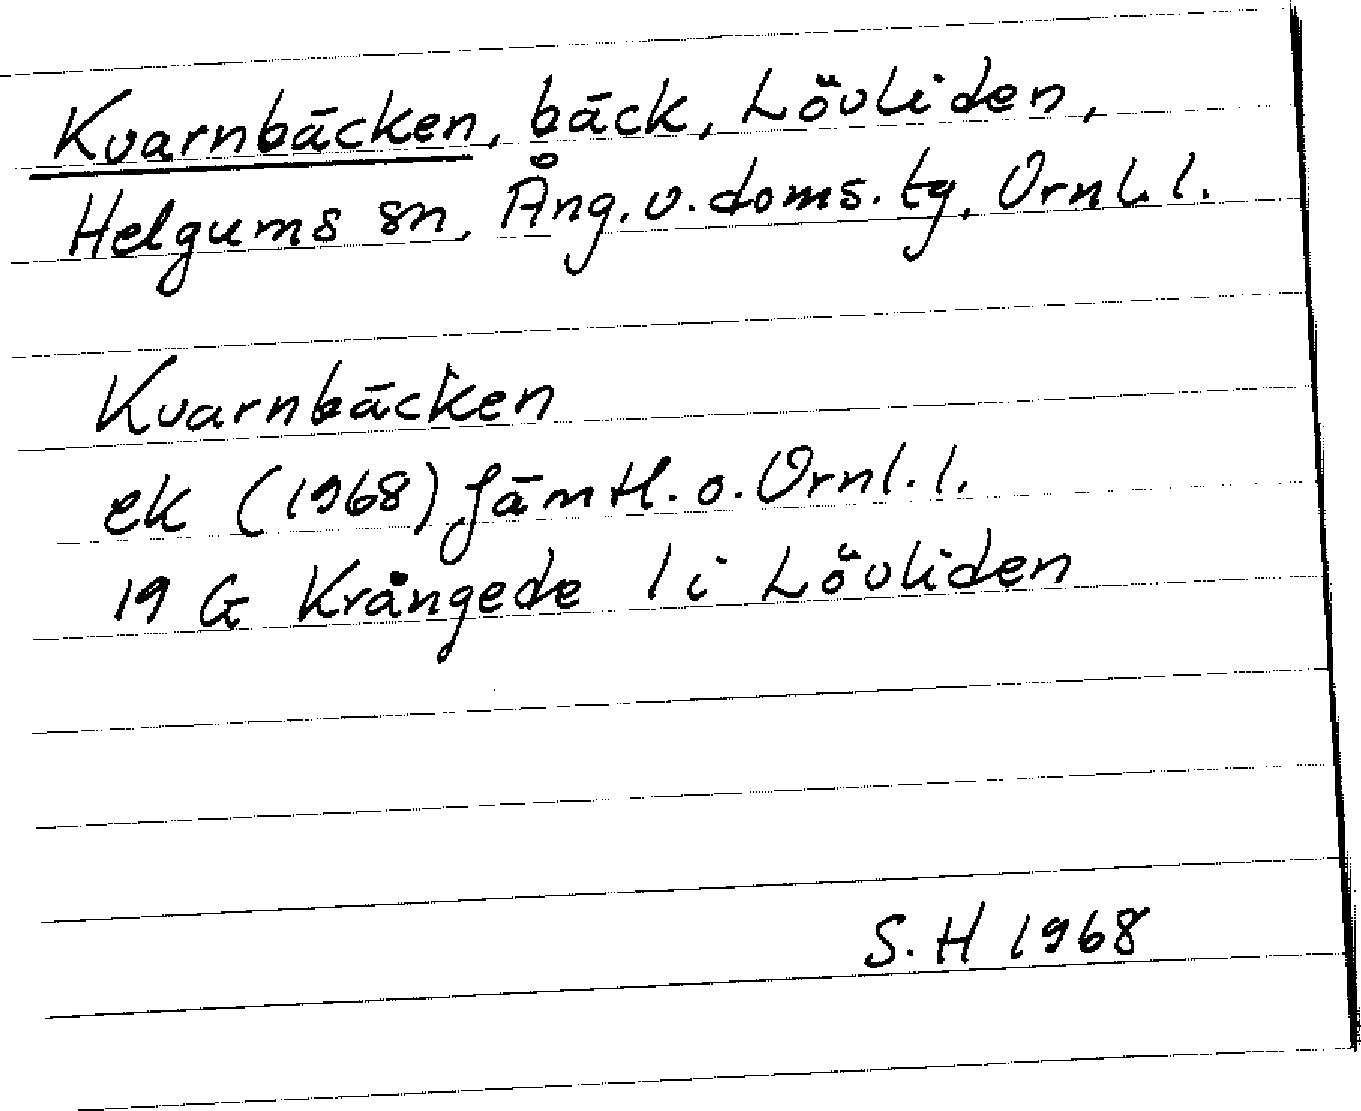 Kvarnbäcken, bäck, Lövliden,
Helgums sn, Ång. v. doms. tg, Vrnl. l.
Kvarnbäcken
ek (1968) Jämtl. o. Vrnl. l.
19 G Krångede 1 i Lövliden
S. H 1968